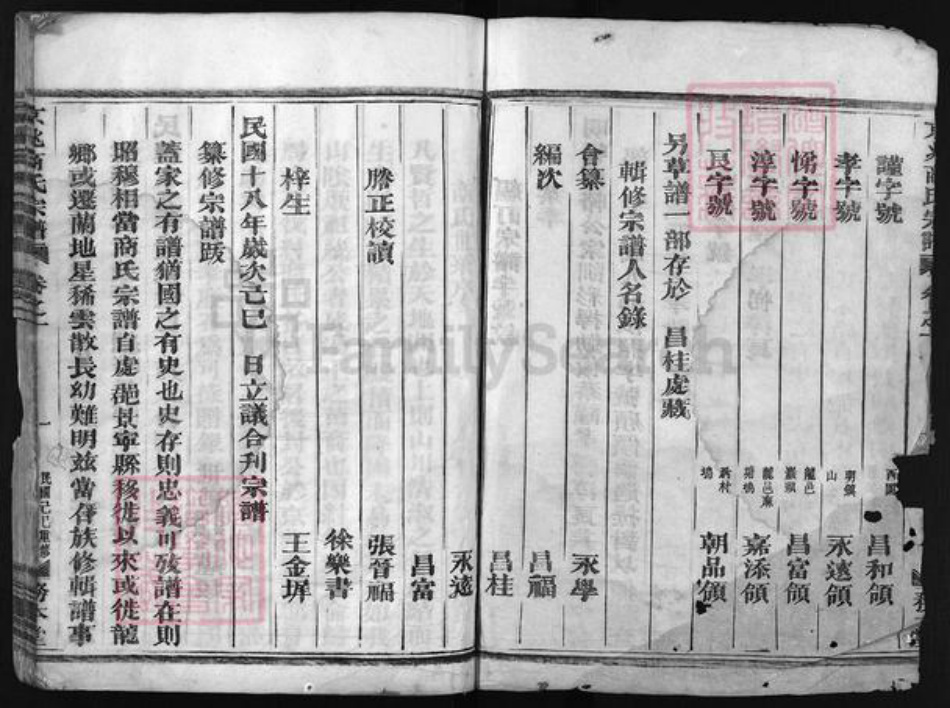 謹字號 西 昌和領
孝字號 明領山 永遠領
悌字號 龍邑 昌富領
淳字號 嘉添領
良字號 新村塢 朝品領
另草譜一部存於 昌桂處藏
輯修宗譜人名錄
合纂 永學
編次 昌福
昌桂
永遠
昌富
謄正校讀 張晉福
徐樂書
梓生 王金墀
民國十八年歲次己巳 日立議合刊宗譜
纂修宗譜跋
蓋家之有譜猶國之有史也史存則忠義可 譜在則
昭穆相當商氏宗譜自處 景寧縣移徙以來或徙龍
鄉或遷蘭地星稀雲散長幼難明兹當 族修輯譜事
京兆商氏宗譜 卷之一
一 民國己巳重修 務本堂
FamilySearch